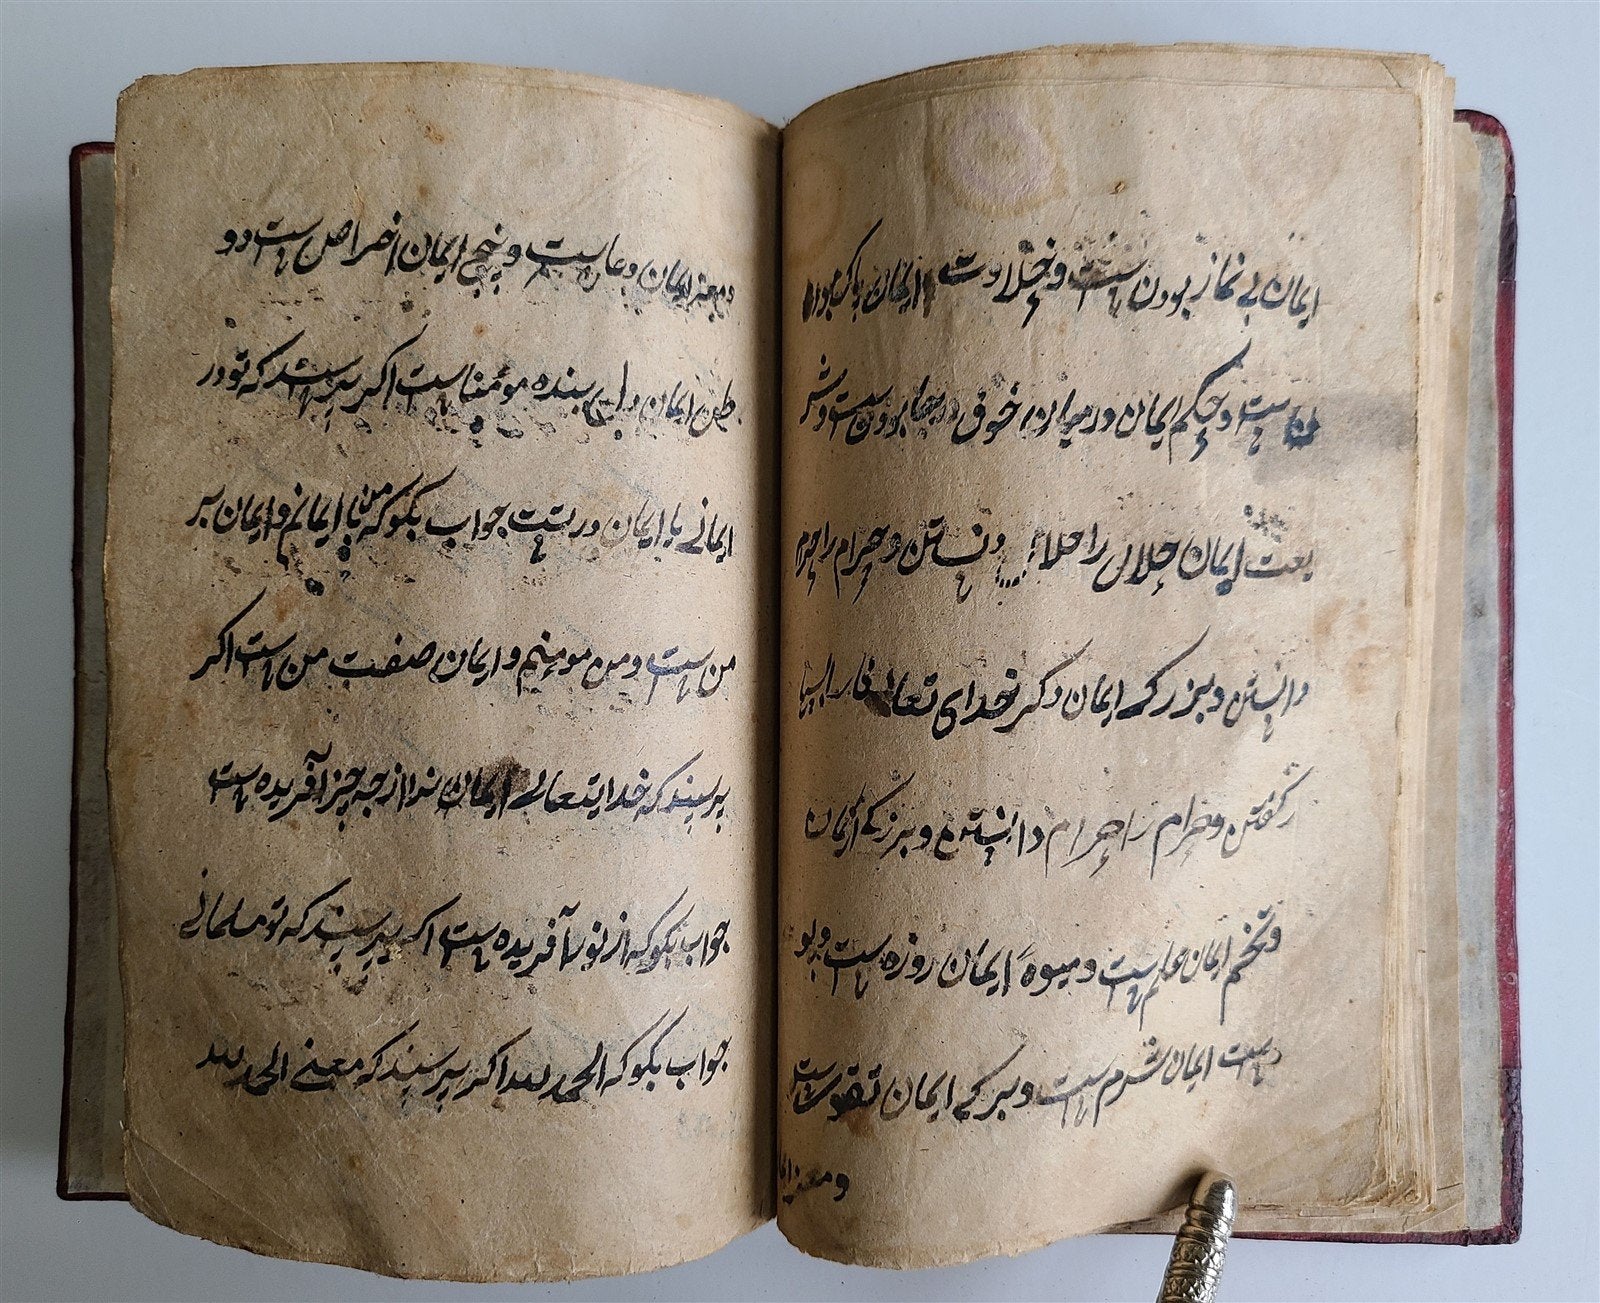 ایمان بی نماز بودن است و حلاوت ایمان پاک بودن
است و حکم ایمان در میان خوف و رجا بودن است و شر
یعت ایمان حلال را حلال دانستن و حرام را حرم
دانستن و بزرکی ایمان ذکر خدای تعالی
کفتن و حرام را حرام دانستن و بزرکی ایمان
و تخم ایمان علم است و میوهٔ ایمان روزه است و پو
ست ایمان شرم است و برک ایمان تقوی است
و مغز ایما
و مغز ایمان دعاست و بیخ ایمان اخلاص است و و
طن ایمان دل بنده مؤمن است اکر پرسند که تو در
ایمانی یا ایمان در تست جواب بکو که من با ایمانم و ایمان بر
من است و من مومنم و ایمان صفت من است اکر
پرسند که خدایتعالی ایمان ترا از چه چیز آفریده است
جواب بکو که از نور آفریده است اکر پرسند که تو مسلمانی
جواب بکو که الحمد لله اکر پرسند که معنی الحمد لله